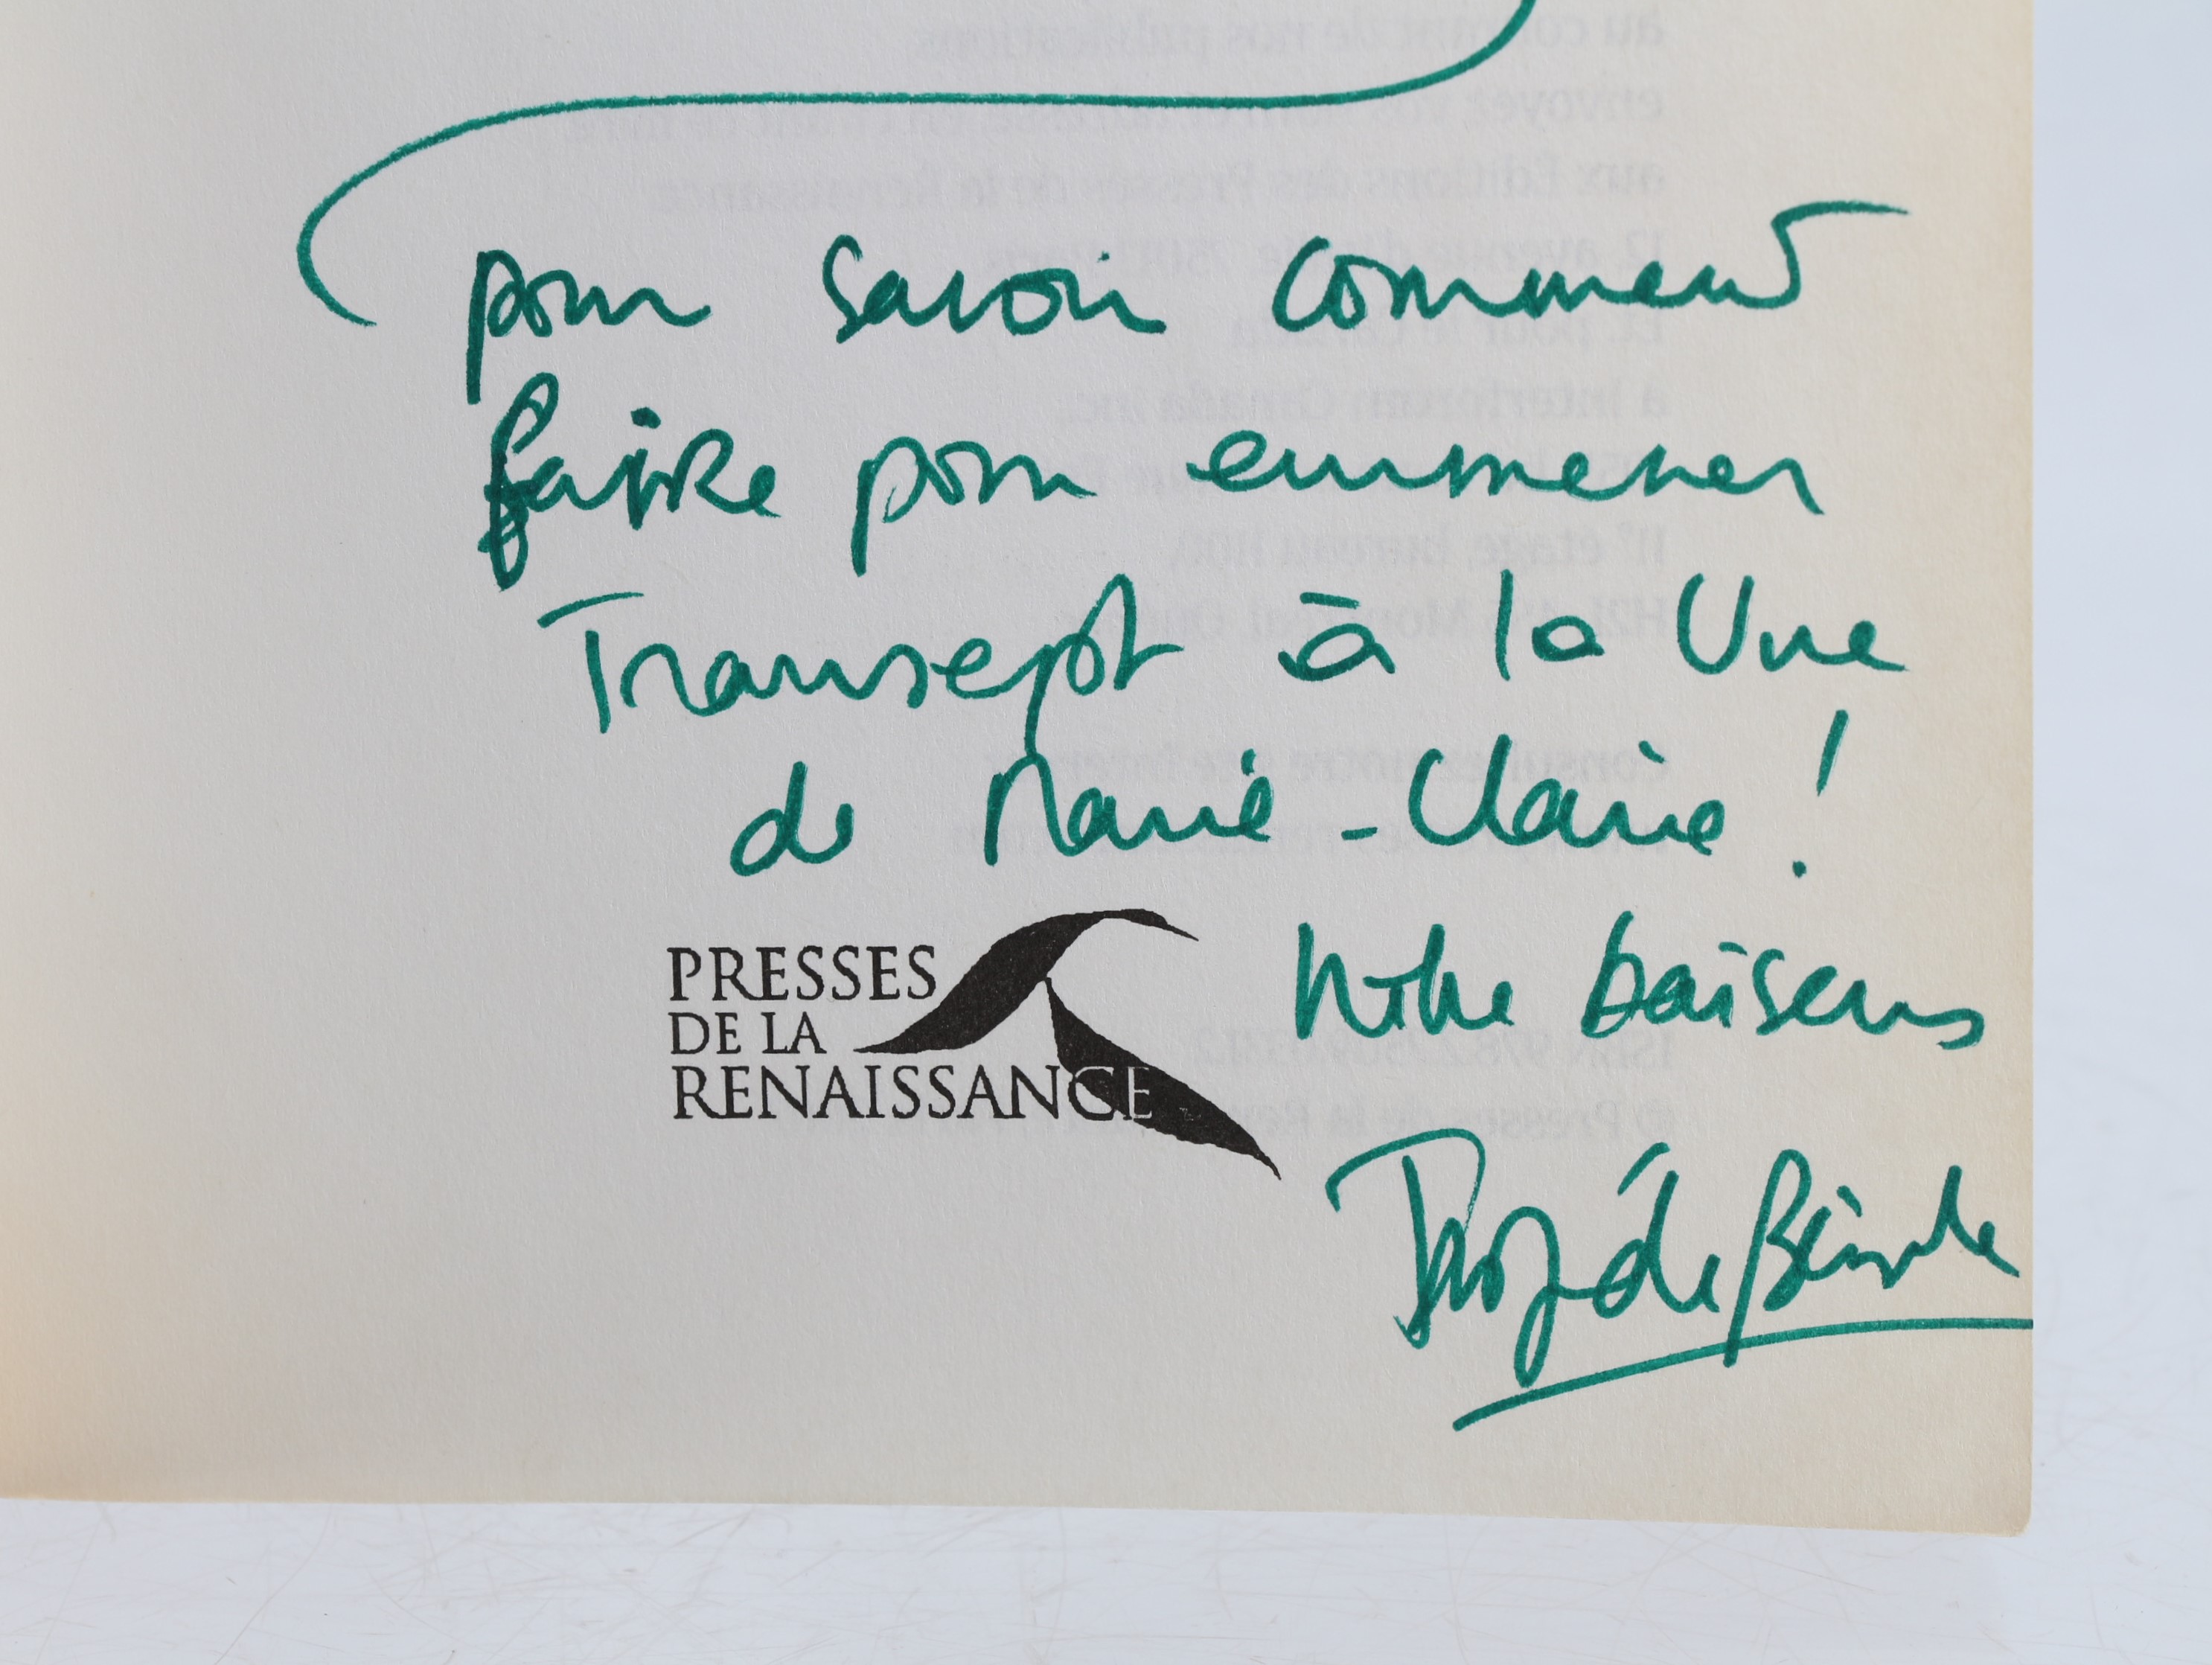 pour savoir comment
faire pour emmener
Transept à la Une
de Marie-Claire !
PRESSES
DE LA
RENAISSANCE
baisers